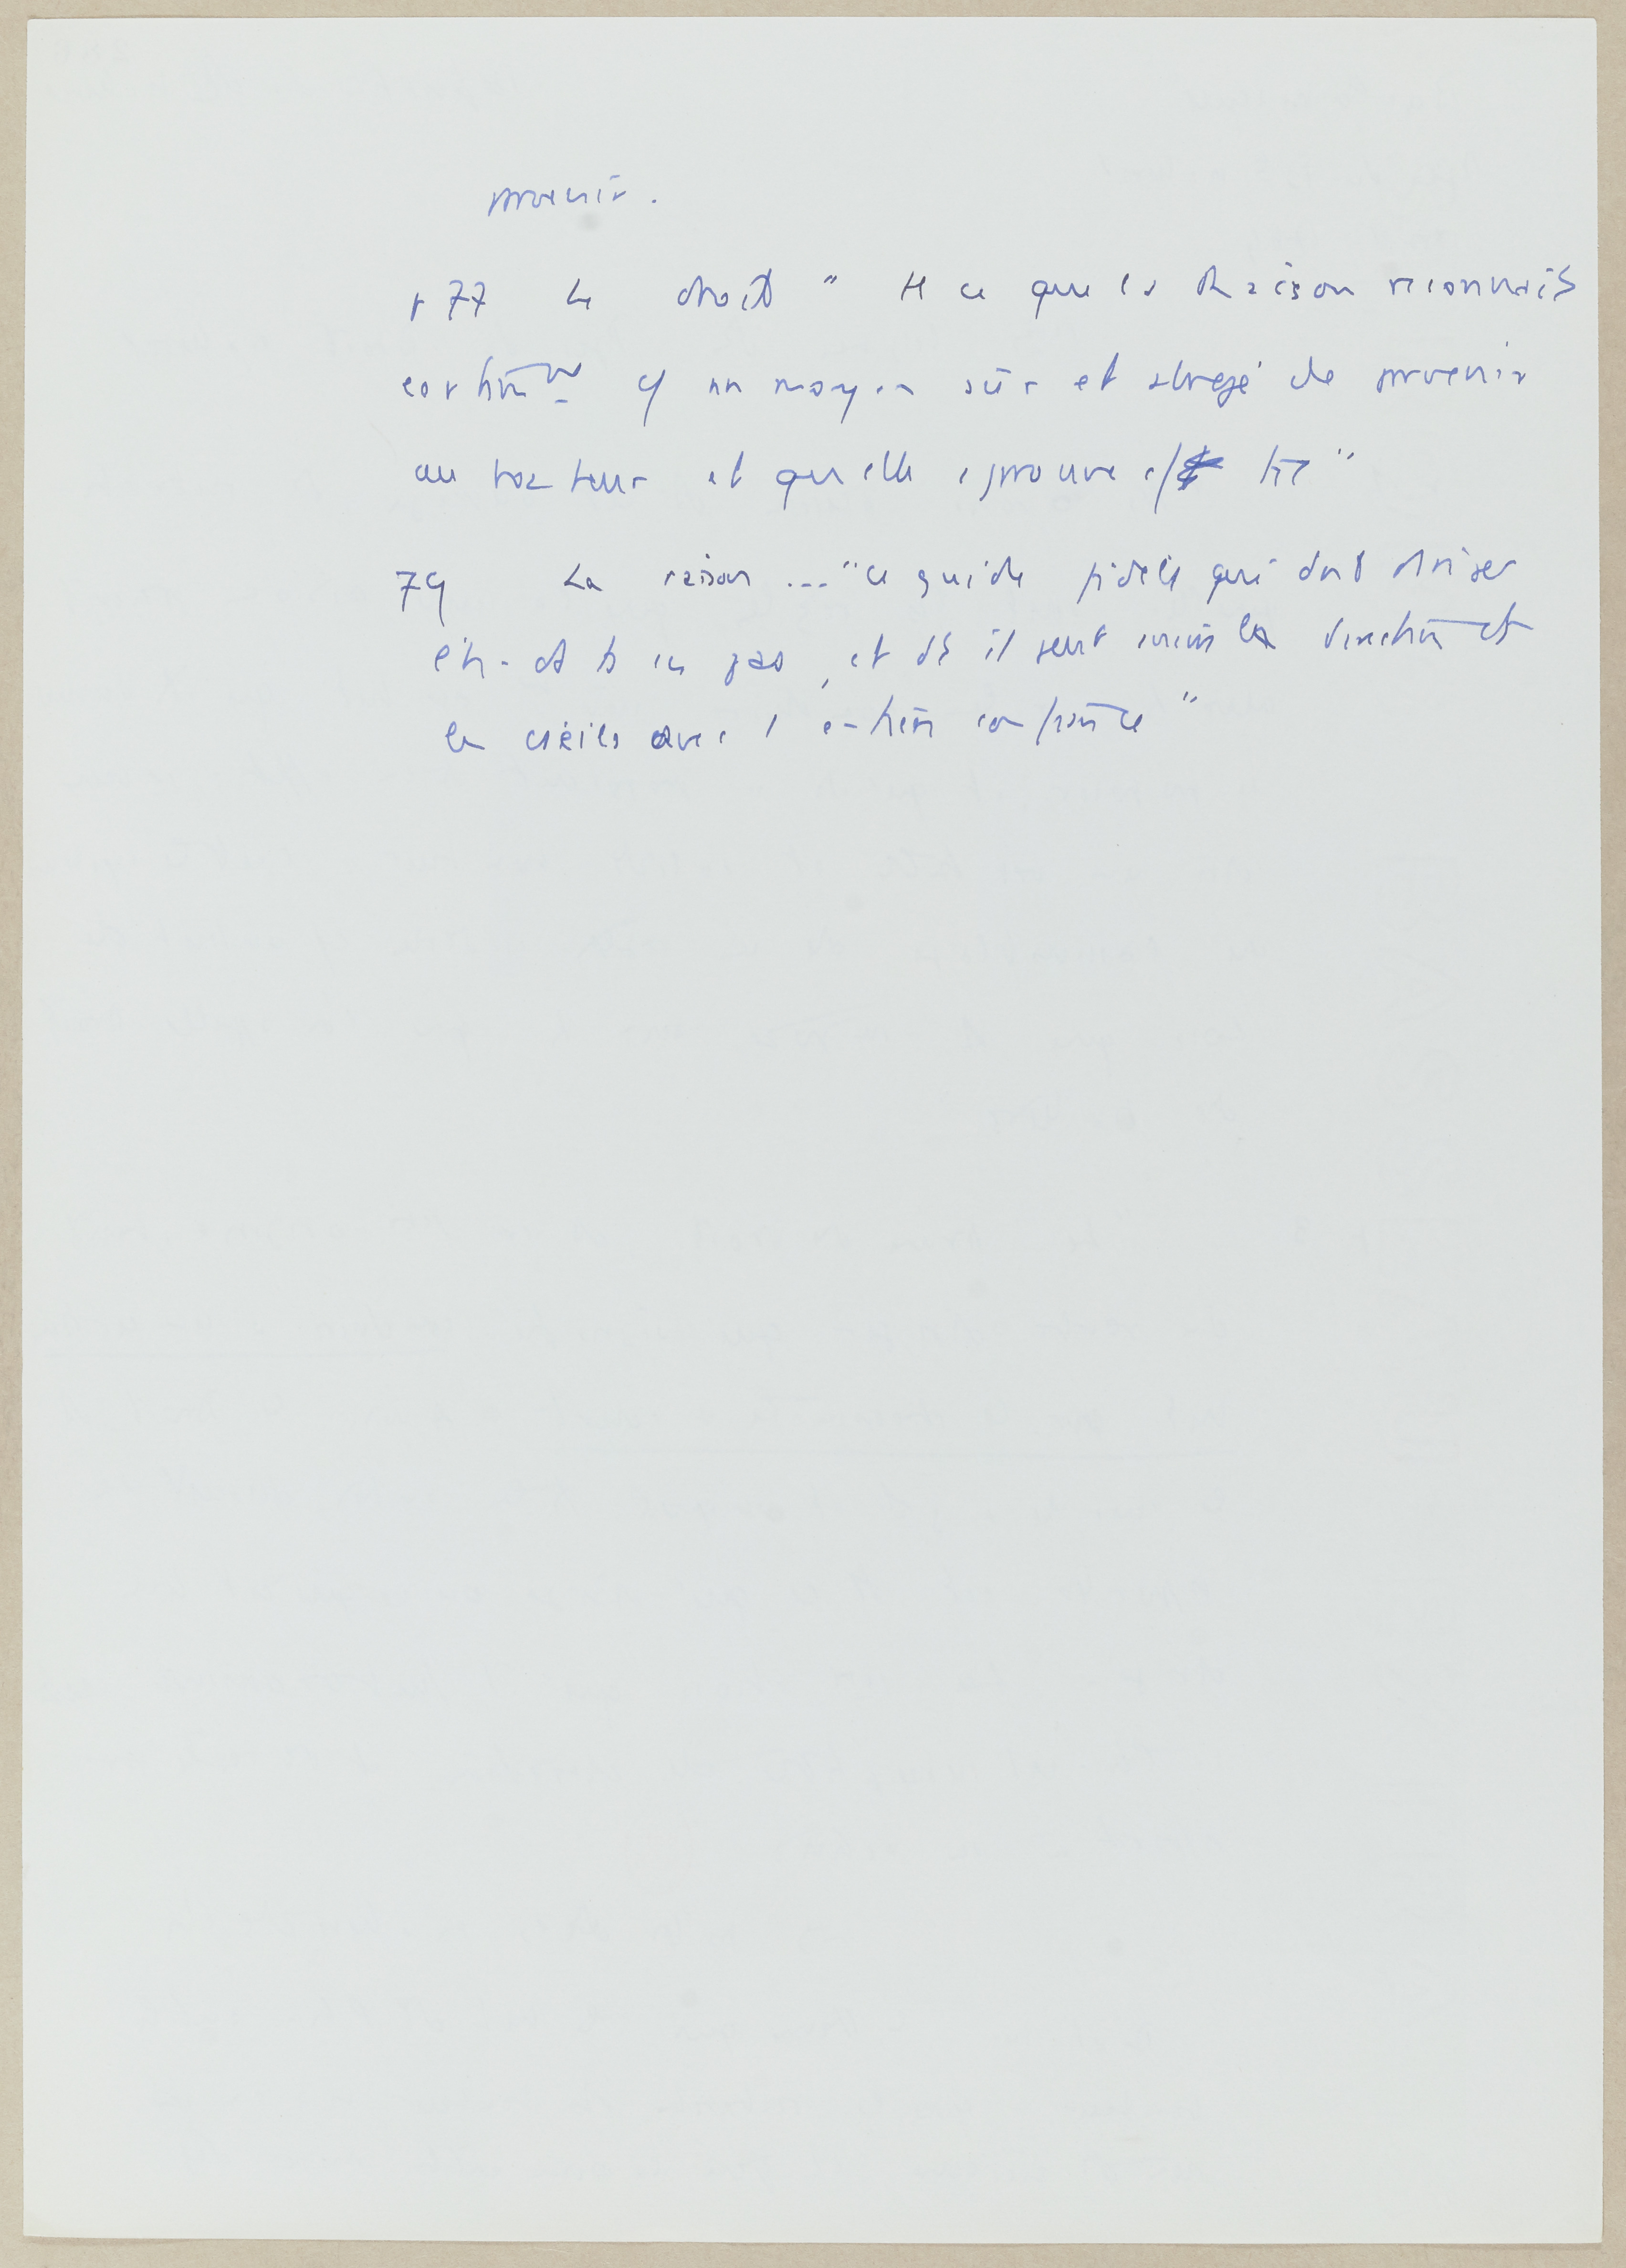 parvenir.
p 77 Le droit " tt ce que la Raison reconnait
certainmt cô un moyen sûr et abrégé de parvenir
au bonheur et qu'elle approuve c/ tel"
79 La raison ... "ce guide fidèle qui doit diriger
et ts ces pas, et dt il peut suivre la direction et
les conseils avec 1 entière confiance"